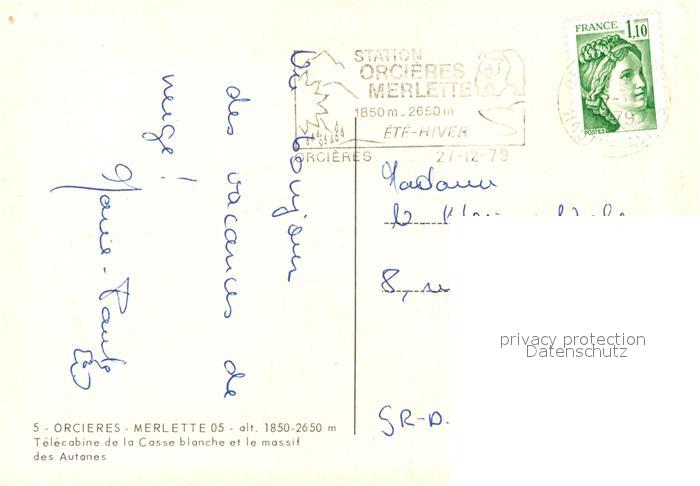 Un bonjour
des vacances de
neige !
Marie-Paule
STATION
ORCIÈRES
MERLETTE
1850m-2650m
ÉTÉ-HIVER
ORCIÈRES 27-12-79
FRANCE 1,10
POSTES
79
Madame
8,
GR-D.
privacy protection
Datenschutz
5 - ORCIERES - MERLETTE 05 - alt. 1850-2650 m
Télécabine de la Casse blanche et le massif
des Autanes